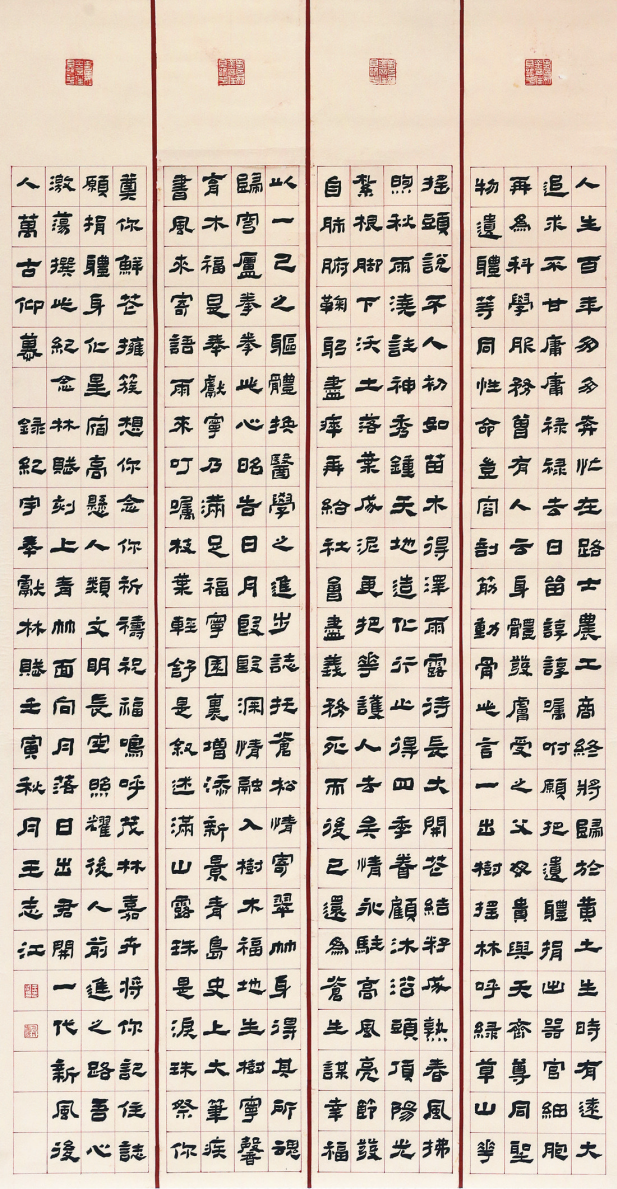 人生百年多多奔忙在路士農工商終將歸於黃土生時有遠大
追求不甘庸庸禄禄去日留諄諄囑咐願把遺體捐出器官細胞
再為科學服務曾有人云身體髮膚受之父母貴與天齊尊同聖
物遺體等同性命豈容剖筋動骨此言一出樹搖林呼緑草山華
搖頭說不人初如苗木得澤雨露待長大開花結籽成熟春風拂
煦秋雨澆註神秀鍾天地造化行止得四季眷顧沐浴頭頂陽光
紮根脚下沃土落葉成泥更把華護人去矣情永駐高風亮節發
自肺腑鞠躬盡瘁再給社會盡義務死而後已還為蒼生謀幸福
以一己之軀體換醫學之進步誌托蒼松情寄翠竹身得其所魂
歸穹廬拳拳此心昭告日月殷殷洞情融入樹木福地生樹寧馨
育木福是奉獻寧乃滿足福寧園裏增添新景青島史上大筆疾
書風來寄語雨來叮囑枝葉輕舒是叙述滿山露珠是淚珠祭你
奠你鮮花擁簇想你念你祈禱祝福鳴呼茂林嘉卉將你記住誌
願捐體身化星宿高懸人類文明長空照耀後人前進之路吾心
激蕩撰此紀念林賦刻上青竹面向月落日出君開一代新風後
人萬古仰慕 録紀宇奉獻林賦壬寅秋月王志江